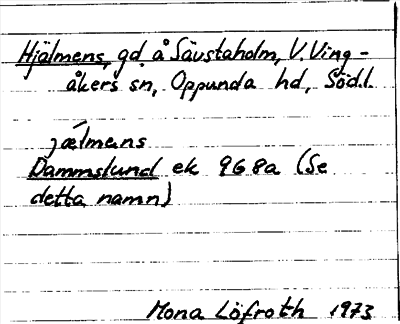 Hjälmens, gd. å Sävstaholm, V. Ving-
åkers sn, Oppunda hd, Södl.
jælmens
Dammslund ek 9G8a (Se
detta namn)
Mona Löfroth 1973